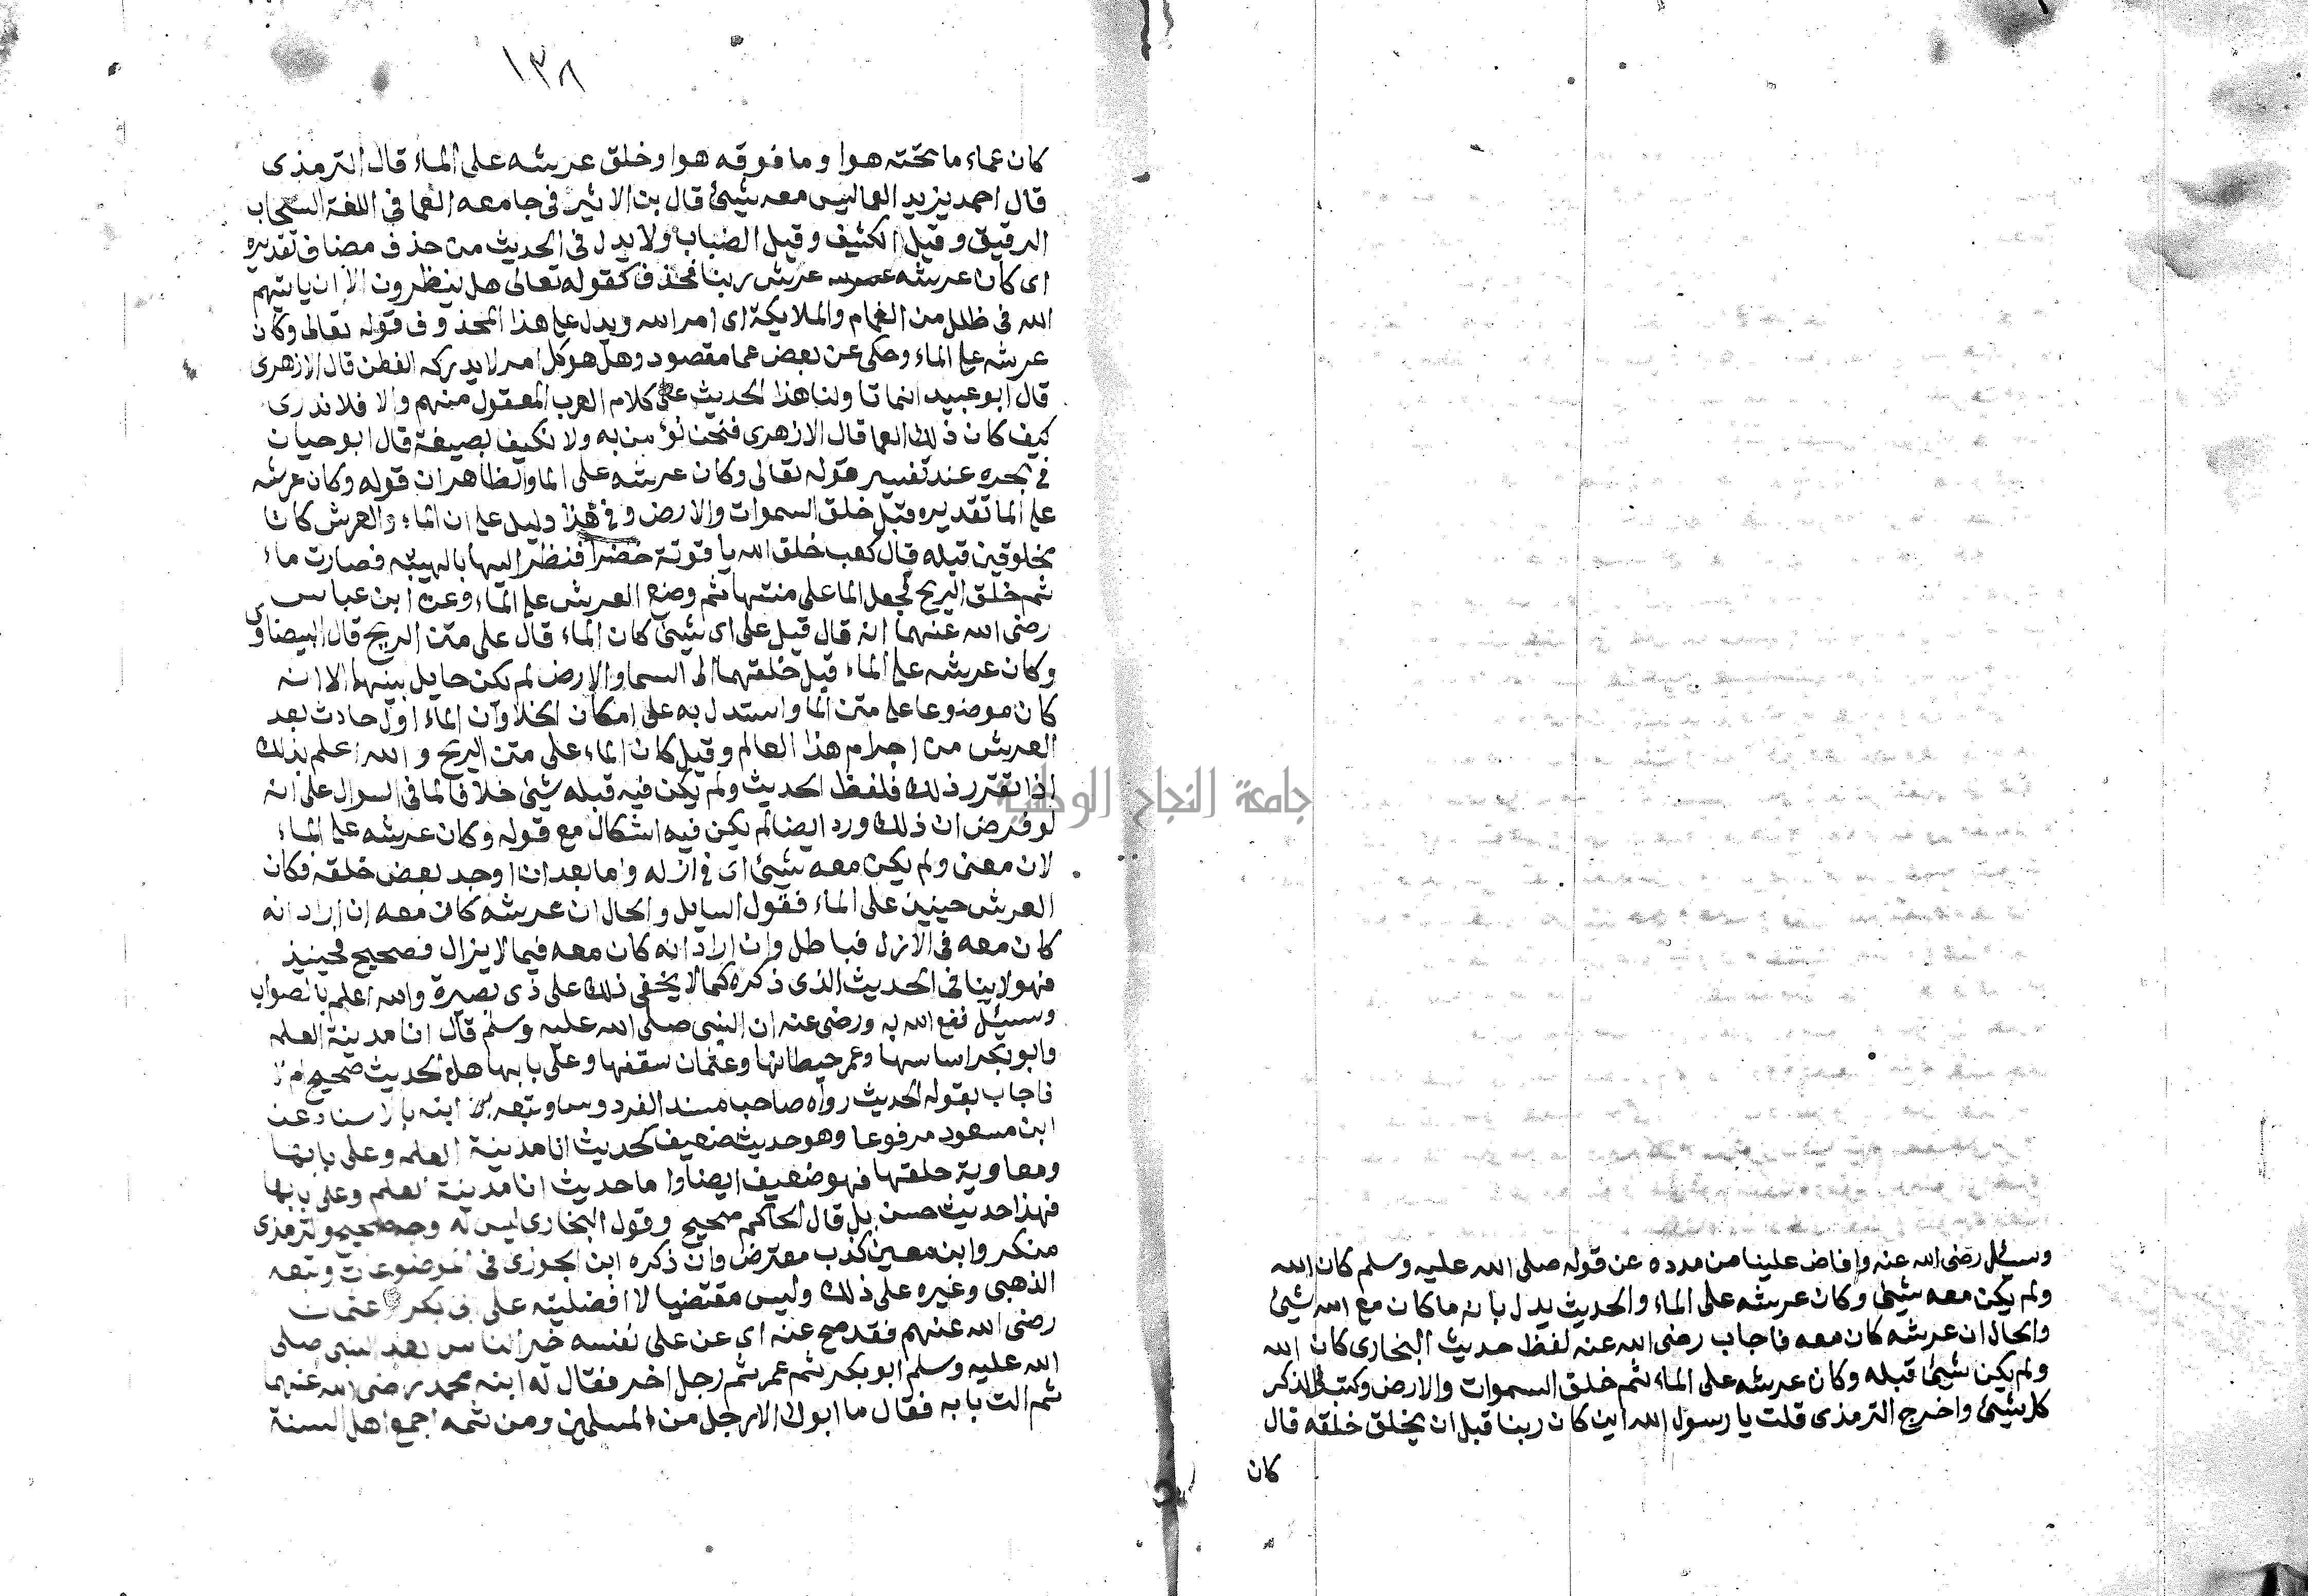 وسئل رضى الله عنه وافاض علينا من مدده عن قوله صلى الله عليه وسلم كان الله
ولم يكن معه شيئ وكان عرشه على الماء والحديث يدل بانه ما كان مع الله شيئ
والحال ان عرشه كان معه فاجاب رضى الله عنه لفظ حديث البخارى كان الله
ولم يكن شيئ قبله وكان عرشه على الماء ثم خلق السموات والارض وكتب فى الذكر
كل شيئ واخرج الترمذى قلت يا رسول الله اين كان ربنا قبل ان يخلق خلقه قال
كان
١٣٨
كان عماء ما تحته هوا وما فوقه هوا وخلق عرشه على الماء قال الترمذى
قال احمد يزيد العما ليس معه شيئ قال بن الاثير فى جامعه العما فى اللغة السحاب
الرقيق وقيل الكثيف وقيل الضباب ولا يدل فى الحديث من حذف مضاف تقديره
اى كان عرشه عرش ربنا فحذف كقوله تعالى هل ينظرون الا ان ياتيهم
الله فى ظلل من الغمام والملايكة اى امر الله ويدل على هذا المحذوف قوله تعالى وكان
عرشه على الماء وحكى عن بعض عما مقصود وهل هو كل امر لا يدركه الفطن قال الازهرى
قال ابو عبيد انما تاولنا هذا الحديث على كلام العرب المعقول منهم والا فلا ندرى
كيف كان ذلك العما قال الازهرى فنحن نؤمن به ولا نكيف بصيغة قال ابو حيان
فى بحره عند تفسير قوله تعالى وكان عرشه على الما والظاهر ان قوله وكان عرشه
على الما تقديره قبل خلق السموات والارض وفى هذا دليل على ان الماء والعرش كانا
مخلوقين قبله قال كعب خلق الله ياقوتة خضرا فنظر اليها بالهيبه فصارت ماء
ثم خلق الريح فجعل الما على منتها ثم وضع العرش على الماء وعن ابن عباس
رضى الله عنهما انه قال قيل على اى شيئ كان الماء قال على متن الريح قال البيضاوى
وكان عرشه على الماء قبل خلقهما اى السما والارض لم يكن حايل بينهما الا انه
كان موضوعا على متن الما واستدل به على امكان الخلا وان الماء اول حادث بعد
العرش من اجرام هذا العالم وقيل كان الماء على متن الريح والله اعلم بذلك
اذا تقرر ذلك فلفظ الحديث ولم يكن فيه قبله شيئ خلافا لما فى السوال على انه
لو فرض ان ذلك ورد ايضا لم يكن فيه اشكال مع قوله وكان عرشه على الماء
لان معنى ولم يكن معه شيئ اى فى ازله واما بعد ان اوجد بعض خلقه فكان
العرش حينين على الماء فقول السايل والحال ان عرشه كان معه ان اراد انه
كان معه فى الازل فباطل وان اراد انه كان معه فيما لا يزال فصحيح فحينيذ
فهو لا ينافى الحديث الذى ذكره كما لا يخفى ذلك على ذى بصيرة والله اعلم بالصواب
وسيئل نفع الله به ورضى عنه ان النبى صلى الله عليه وسلم قال انا مدينة العلم
وابو بكر اساسها وعمر حيطانها وعثمان سقفها وعلى بابها هل الحديث صحيح ام لا
فاجاب بقوله الحديث رواه صاحب مسند الفردوس وتبعه ابنه بالاسناد عن
ابن مسعود مرفوعا وهو حديث ضعيف كحديث انا مدينة العلم وعلى بابها
ومعاوية حلقتها فهو ضعيف ايضا واما حديث انا مدينة العلم وعلى بابها
فهذا حديث حسن بل قال الحاكم صحيح وقول البخارى ليس له وجه صحيح والترمذى
منكر وابن معين كذب معترض وان ذكره ابن الجوزى فى الموضوعات وتبعه
الذهبى وغيره على ذلك وليس مقتضيا لافضليته على ابى بكر عثمان
رضى الله عنهم فقد صح عنه اى عن على نفسه خير الناس بعد النبى صلى
الله عليه وسلم ابو بكر ثم عمر ثم رجل اخر فقال له ابنه محمد رضى الله عنهما
ثم انت يا ابه فقال ما ابوك الا رجل من المسلمين ومن ثمه اجمع اهل السنة
جامعة النجاح الوطنية